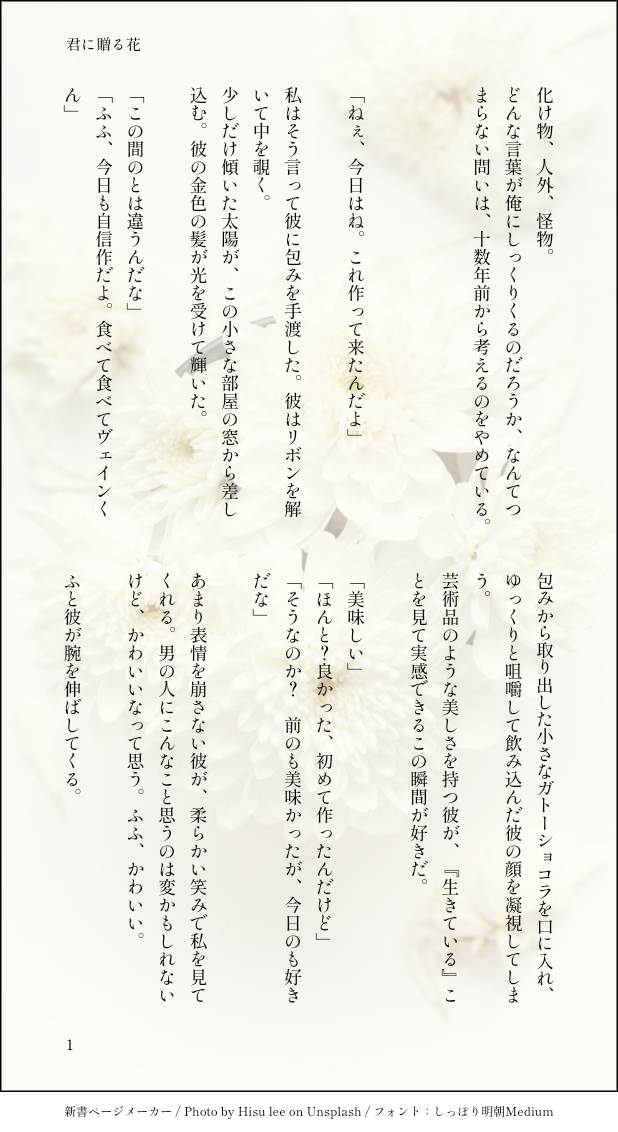 君に贈る花
化け物、人外、怪物。
どんな言葉が俺にしっくりくるのだろうか、なんてつ
まらない問いは、十数年前から考えるのをやめている。
「ねぇ、今日はね。これ作って来たんだよ」
私はそう言って彼に包みを手渡した。彼はリボンを解
いて中を覗く。
少しだけ傾いた太陽が、この小さな部屋の窓から差し
込む。彼の金色の髪が光を受けて輝いた。
「この間のとは違うんだな」
「ふふ、今日も自信作だよ。食べて食べてヴェインく
ん」
包みから取り出した小さなガトーショコラを口に入れ、
ゆっくりと咀嚼して飲み込んだ彼の顔を凝視してしま
う。
芸術品のような美しさを持つ彼が、『生きている』こ
とを見て実感できるこの瞬間が好きだ。
「美味しい」
「ほんと？良かった、初めて作ったんだけど」
「そうなのか？　前のも美味かったが、今日のも好き
だな」
あまり表情を崩さない彼が、柔らかい笑みで私を見て
くれる。男の人にこんなこと思うのは変かもしれない
けど、かわいいなって思う。ふふ、かわいい。
ふと彼が腕を伸ばしてくる。
1
新書ページメーカー / Photo by Hisu lee on Unsplash / フォント：しっぽり明朝Medium